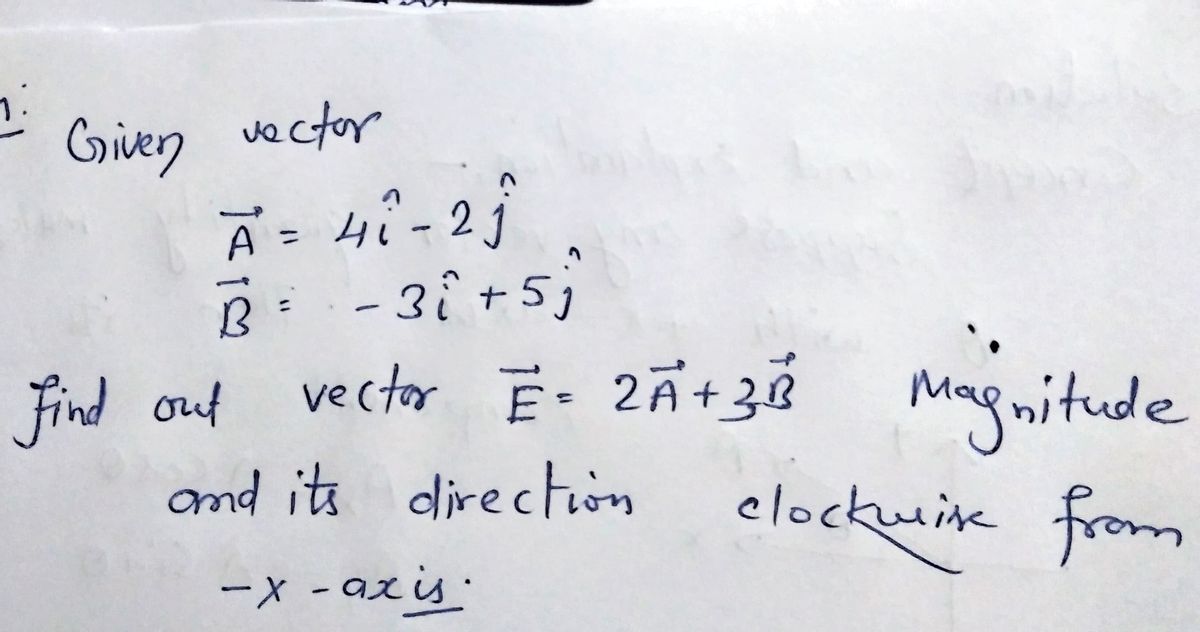 Given vector
A⃗ = 4î - 2ĵ
B⃗ = - 3î + 5ĵ
find out vector E⃗ = 2A⃗ + 3B⃗ Magnitude
and its direction clockwise from
-x-axis.